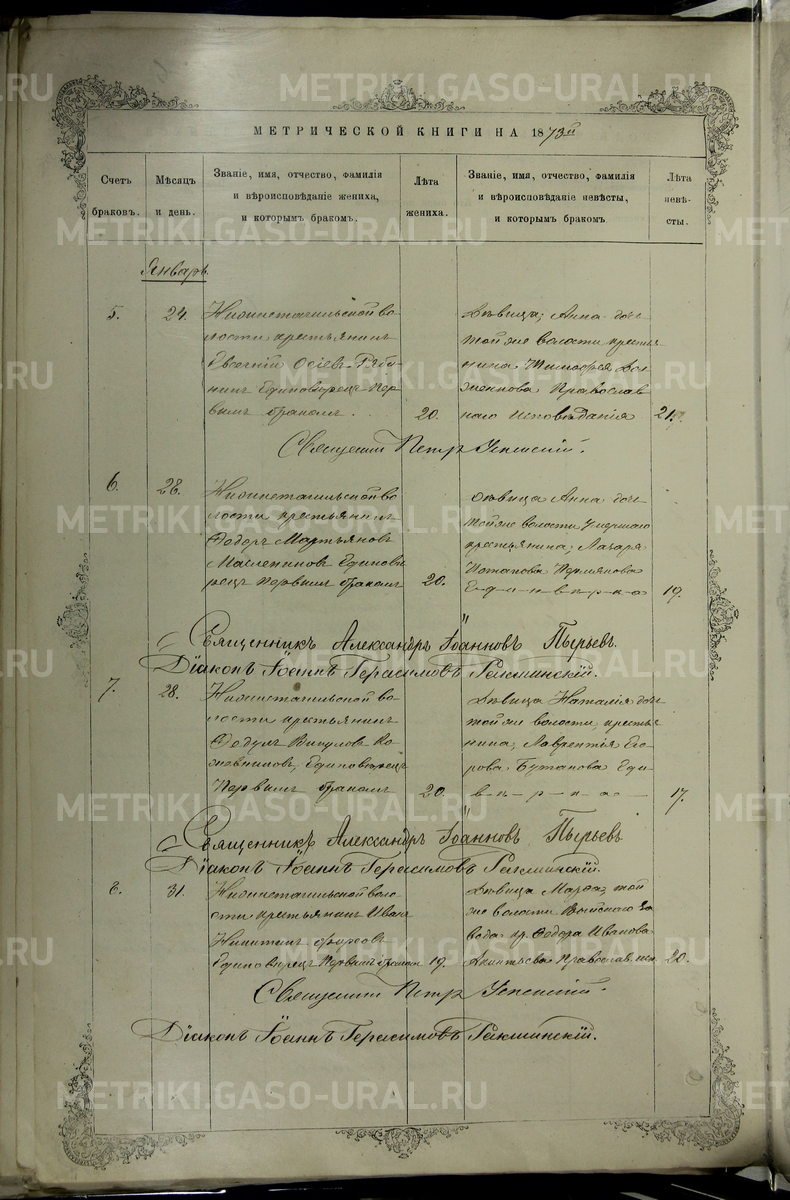 МЕТРИЧЕСКОЙ КНИГИ НА 1873й
Счетъ браковъ.
Мѣсяцъ и день.
Званіе, имя, отчество, фамилія
и вѣроисповѣданіе жениха,
и которымъ бракомъ.
Лѣта жениха.
Званіе, имя, отчество, фамилія
и вѣроисповѣданіе невѣсты,
и которымъ бракомъ
Лѣта невѣсты.
Январь.
5. 24.
Нижнетагильской во-
лости крестьянинъ
Евгеній Осіевъ Ряби-
нинъ Единовѣрецъ Пер-
вымъ бракомъ.
20.
Дѣвица, Анна дочь
той же волости крестья-
нина Тимофея
Православ-
наго Исповѣданія
21.
Священникъ Петръ Успенскій.
6. 28.
Нижнетагильской во-
лости крестьянинъ
Ѳедоръ Мартьяновъ
Масленниковъ Единовѣ-
рецъ Первымъ бракомъ
20.
Дѣвица Анна дочь
той же волости умершаго
крестьянина, Лазаря
Потапова Пермякова
Единовѣрка
19.
Священникъ Александръ Іоанновъ Пырьевъ.
Діаконъ Іоаннъ Герасимовъ
7. 28.
Нижнетагильской во-
лости крестьянинъ
Ѳедулъ Викуловъ Ко-
жевниковъ, Единовѣрецъ
Первымъ бракомъ
20.
Дѣвица Наталія дочь
той же волости, крестья-
нина, Лаврентія Его-
рова Бутакова Еди-
новѣрка
17.
Священникъ Александръ Іоанновъ Пырьевъ
Діаконъ Іоаннъ Герасимовъ
8. 31.
Нижнетагильской воло-
сти крестьянинъ Иванъ
Никитинъ Фирсовъ
Единовѣрецъ Первымъ бракомъ
19.
Дѣвица Марѳа, той
же волости Выйскаго За-
вода кр. Ѳедора Иванова
Православ. исп.
20.
Священникъ Петръ Успенскій.
Діаконъ Іоаннъ Герасимовъ
METRIKI.GASO-URAL.RU